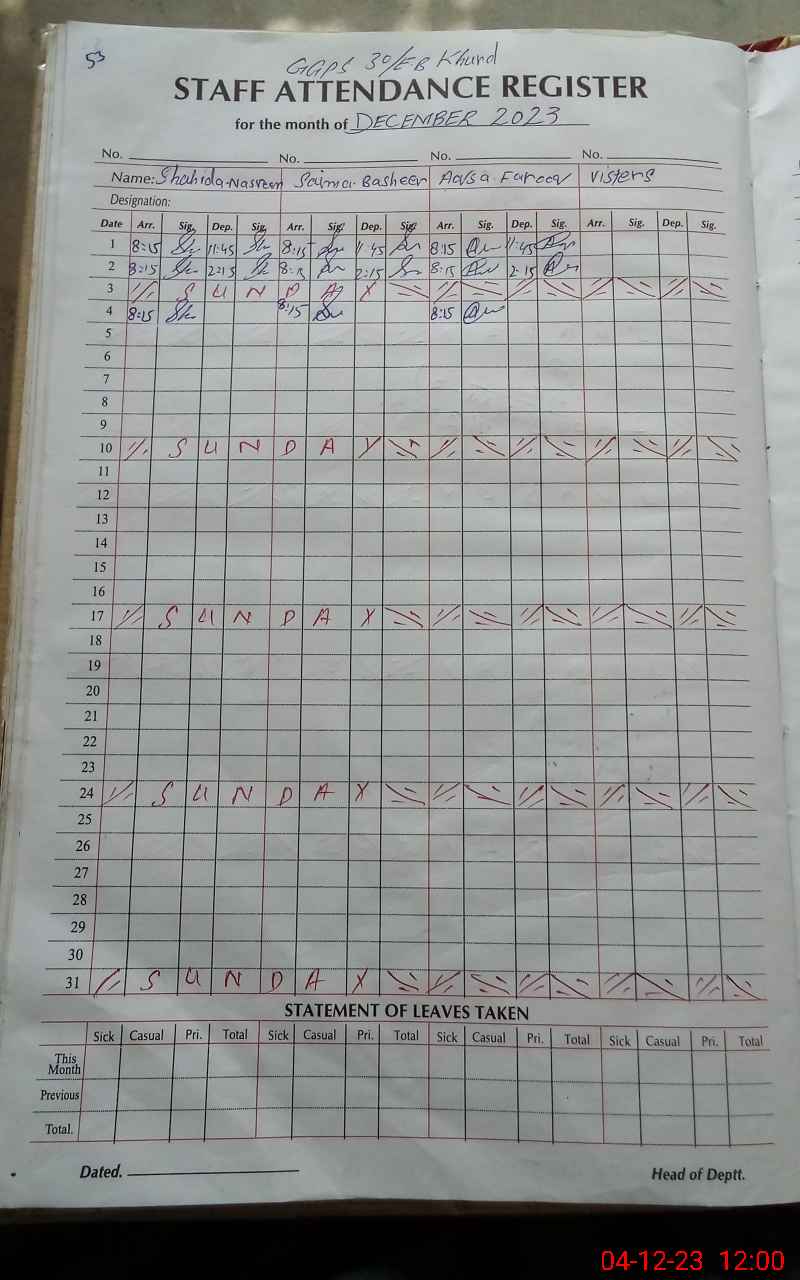 53
GGPS 30/E.B Khurd
STAFF ATTENDANCE REGISTER
for the month of DECEMBER 2023
No. No. No. No.
Name: Shahida Nasreen Saima Basheer Farooq Visters
Designation:
Date Arr. Sig. Dep. Sig. Arr. Sig. Dep. Sig. Arr. Sig. Dep. Sig. Arr. Sig. Dep. Sig.
1 8:15 11:45 8:15 11:45 8:15 11:45
2 8:15 2:15 8:15 2:15 8:15 2:15
3 S U N D A Y
4 8:15 8:15 8:15
5
6
7
8
9
10 S U N D A Y
11
12
13
14
15
16
17 S U N D A Y
18
19
20
21
22
23
24 S U N D A Y
25
26
27
28
29
30
31 S U N D A Y
STATEMENT OF LEAVES TAKEN
Sick Casual Pri. Total Sick Casual Pri. Total Sick Casual Pri. Total Sick Casual Pri. Total
This
Month
Previous
Total.
Dated. Head of Deptt.
04-12-23 12:00